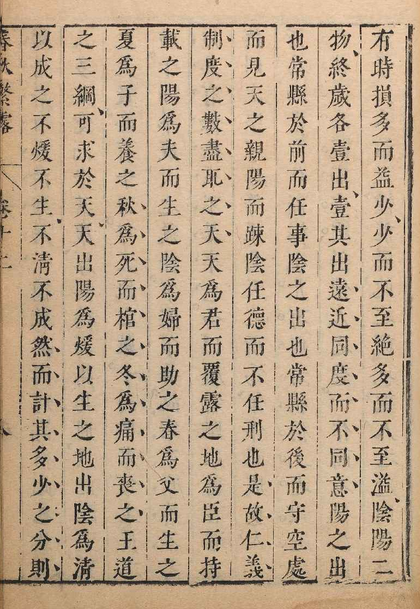 有時損多而益少少而不至絕多而不至溢陰陽二
物終歲各壹出壹其出遠近同度而不同意陽之出
也常縣於前而任事陰之出也常縣於後而守空處
而見天之親陽而疎陰任德而不任刑也是故仁義
制度之數盡取之天天爲君而覆露之地爲臣而持
載之陽爲夫而生之陰爲婦而助之春爲父而生之
夏爲子而養之秋爲死而棺之冬爲痛而喪之王道
之三綱可求於天天出陽爲煖以生之地出陰爲清
以成之不煖不生不清不成然而計其多少之分則
春秋繁露 卷十二